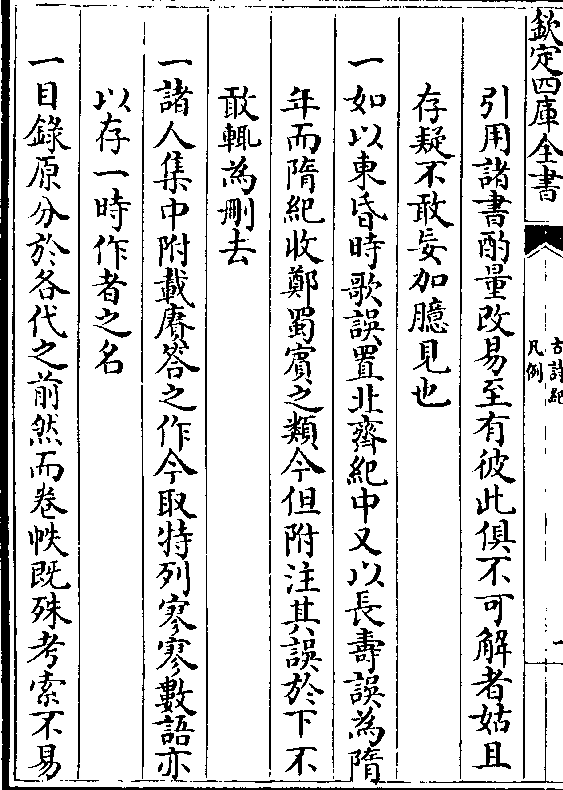 欽定四庫全書
古詩紀
凡例
一
引用諸書酌量改易至有彼此俱不可解者姑且
存疑不敢妄加臆見也
一如以東昏時歌誤置北齊紀中又以長壽誤為隋
年而隋紀收鄭蜀賓之類今但附注其誤於下不
敢輒為刪去
一諸人集中附載賡答之作今取特列寥寥數語亦
以存一時作者之名
一目錄原分於各代之前然而卷帙既殊考索不易